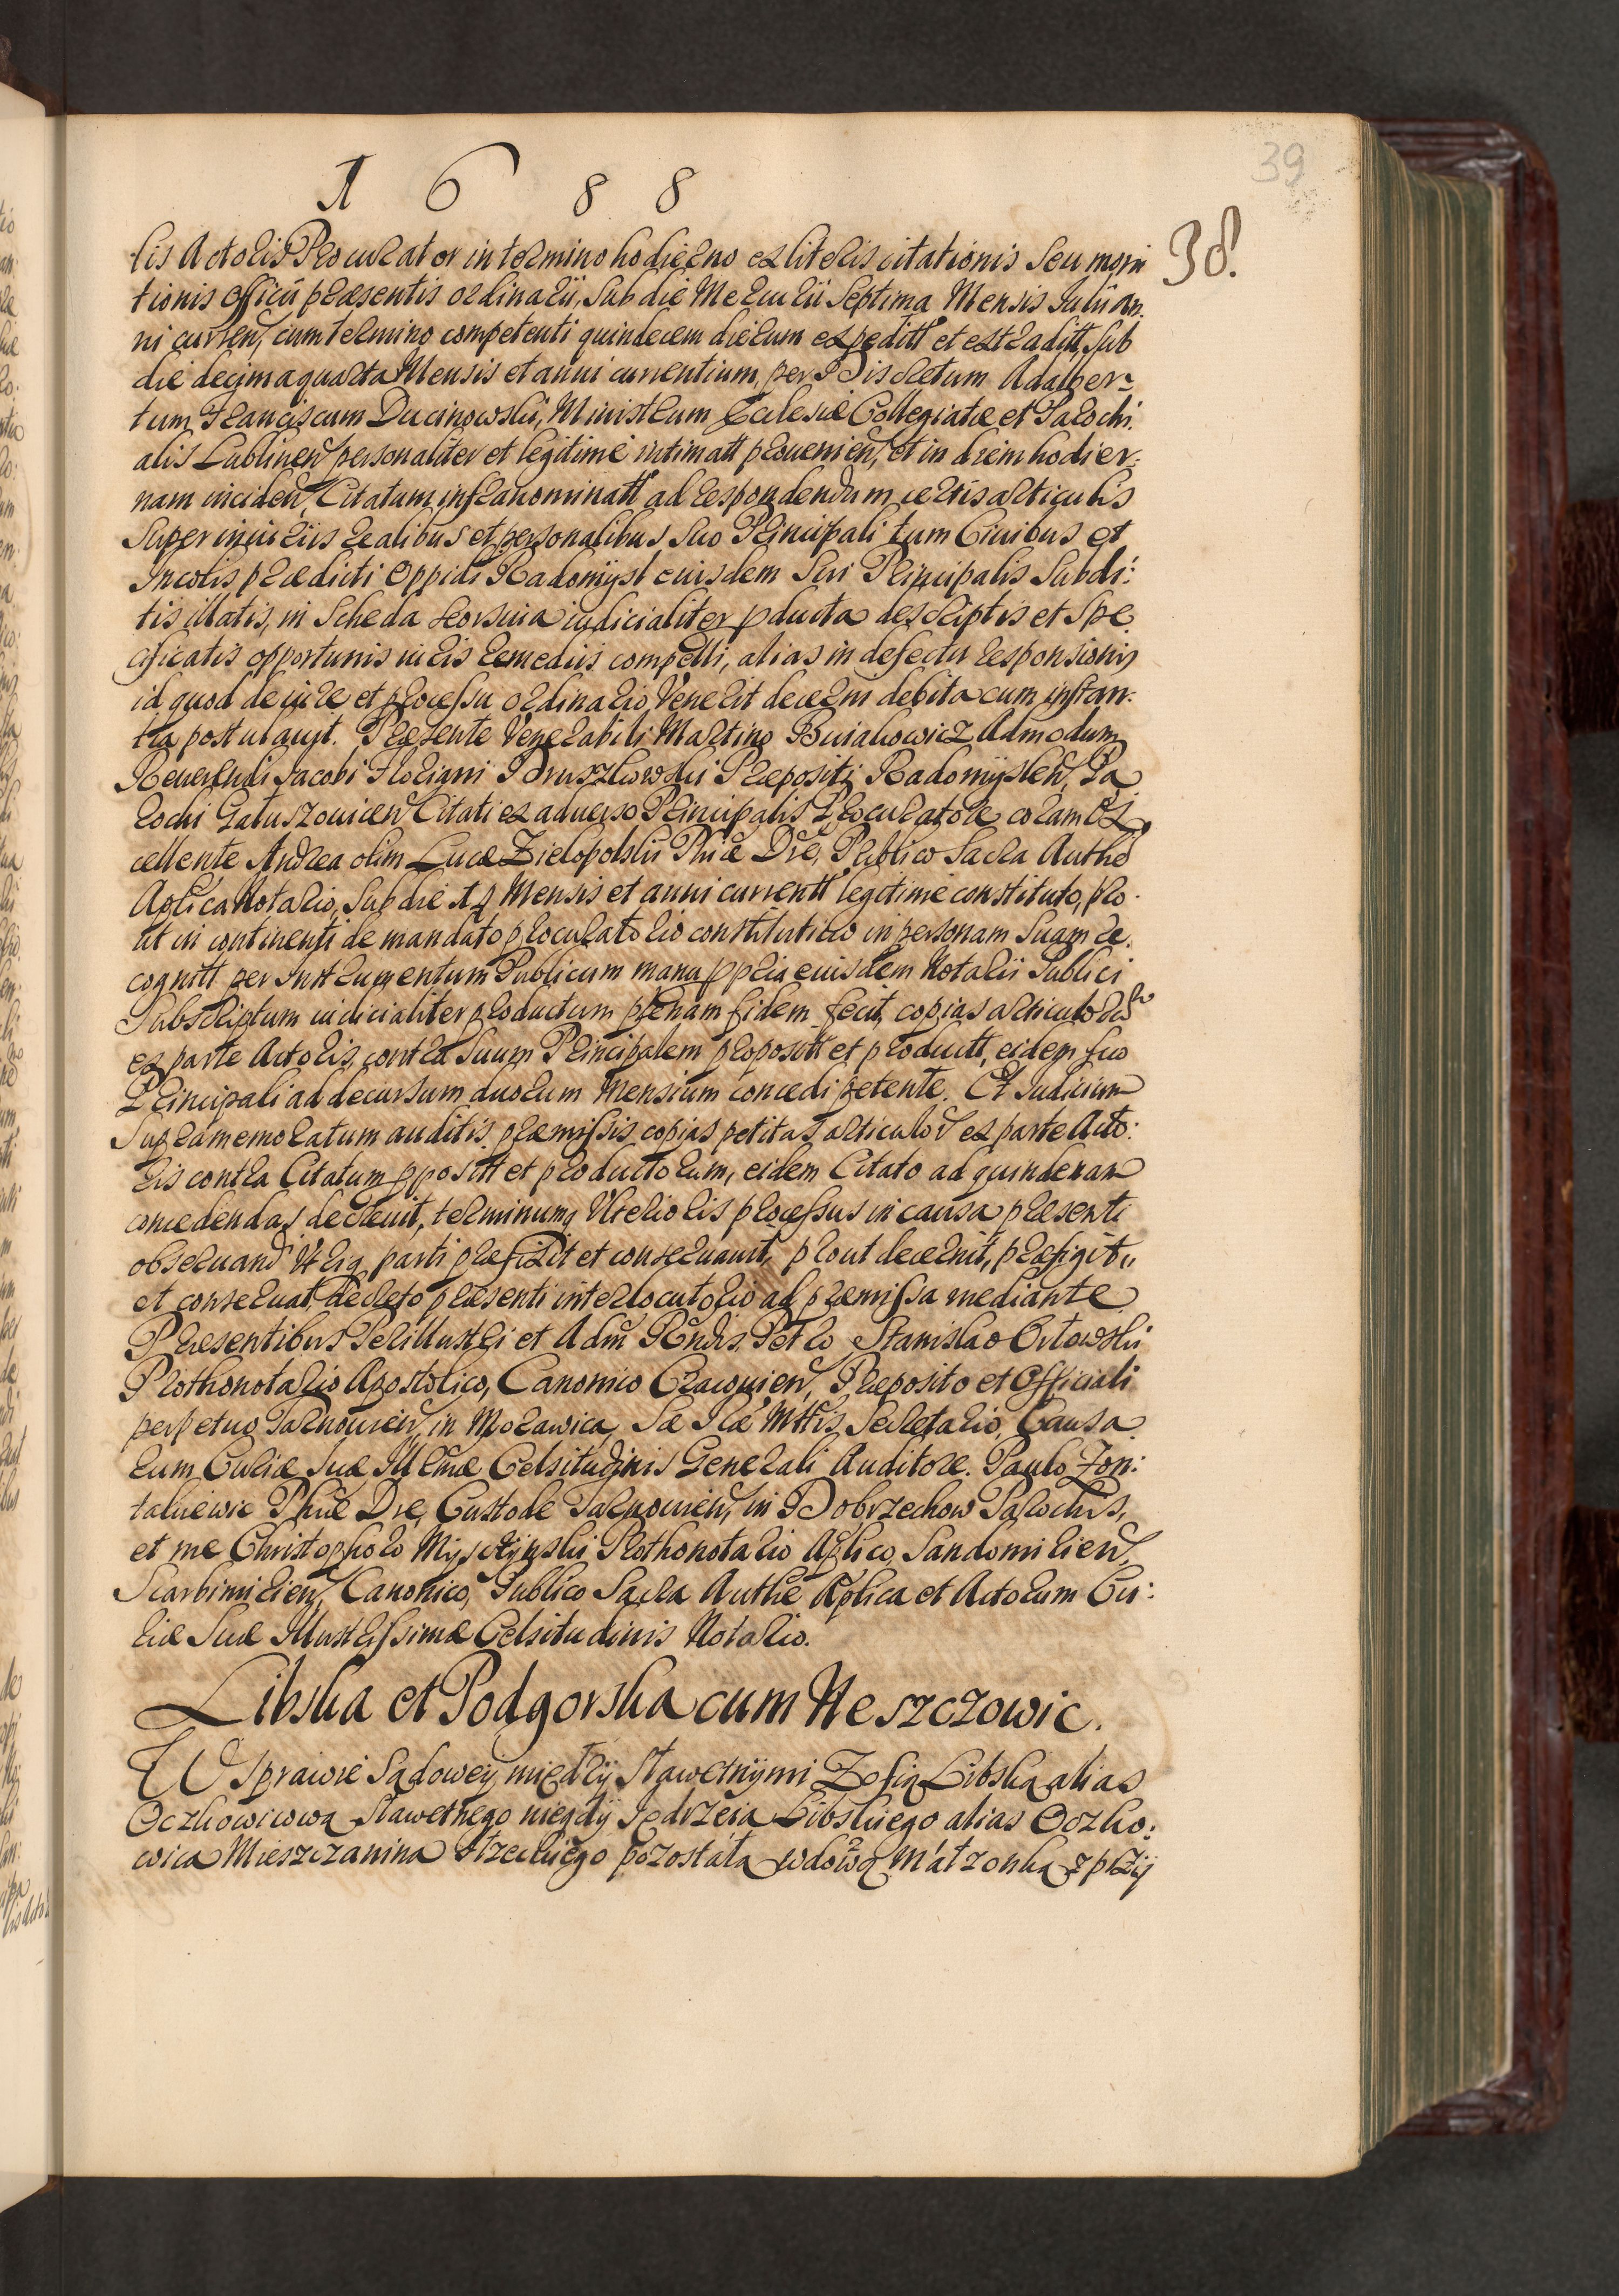 39
1688
38.
lis Actoris Procurator in termino hodierno ex literis citationis seu moni
tionis officii præsentis ordinarii, sub die Mercurii septima Mensis Iulii an:
ni curren, cum termino competenti quindecem dierum expeditt et extraditt, sub
die decima quarta Mensis et anni currentium, per Discretum Adalber-
tum Franciscum Ducinowski, Ministrum Ecclesiæ Collegiatæ et Parochi:
alis Lublinen personaliter et legitime intimatt provenien, et in diem hodier:
nam inciden, Citatum infranominatt ad respondendum certis articulis
super iniuriis realibus et personalibus suo Principali tum Civibus et
Incolis prædicti Oppidi Radomysl eiusdem sui Principalis Subdi:
tis illatis, in Scheda seorsiva iudicialiter pducta descriptis et spe
cificatis opportunis iuris remediis compelli, alias in defectu responsionis
id quod de iure et processu ordinario Venerit decerni debita cum instan:
tia postulavit. Præsente Venerabili Martino Buiakowicz Admodum
Reverendi Jacobi Floriani Pruszkowski Præpositi Radomyslen, Pa
rochi Gatuszovicen Citati ex adverso Principalis Procuratore coram Ex
cellente Andrea olim Lucæ Zielopolski Phiæ Dre, Publico Sacra Authe
Aplica Notario, sub die 19 Mensis et anni currentt legitime constituto, pro
ut in continenti de mandato procuratorio constitutivo in personam suam re:
cognitt per Instrumentum Publicum manu ppria eiusdem Notarii Publici
Subscriptum iudicialiter productum plenam fidem fecit, copias articulorum
ex parte Actoris, contra suum Principalem propositt et productt, eidem suo
Principali ad decursum duorum Mensium concedi petente. Et Iudicium
Supramemoratum auditis præmissis, copias petitas articulor ex parte Acto:
ris contra Citatum ppositt et productorum, eidem Citato ad quindenam
concedendas decrevit, terminumq Ulterioris processus in causa præsenti
observand Utriq parti præfixit et conservavit, prout decernit, præfigit
et conservat, decreto præsenti interlocutorio ad præmissa mediante
Præsentibus Perillustri et Adm Rndis Petro Stanislao Orlowski
Prothonotario Apostolico, Canonico Cracovien, Præposito et Officiali
perpetuo Tarnovien, in Morawica, Sæ Ræ Mttis Secretario, Causa
rum Curiæ Suæ Illmæ Celsitudinis Generali Auditore. Paulo Fon:
taluewic Phiæ Dre, Custode Tarnovien, in Dobrzechow Parochis,
et me Christophoro Mysczynski Prothonotario Aplico, Sandomirien,
Scarbimirien, Canonico, Publico Sacra Authe Aplica et Actorum Cu:
riæ Suæ Illustrissimæ Celsitudinis Notario.
Libska et Podgorska cum Neszczowic.
W sprawie Sądowey między sławetnymi Zofią Libską alias
Oczkowicową sławetnego niegdy Jędrzeia Libskiego alias Oczko:
wica Mieszczanina Ilzeckiego pozostałą wdową małzonką z przy